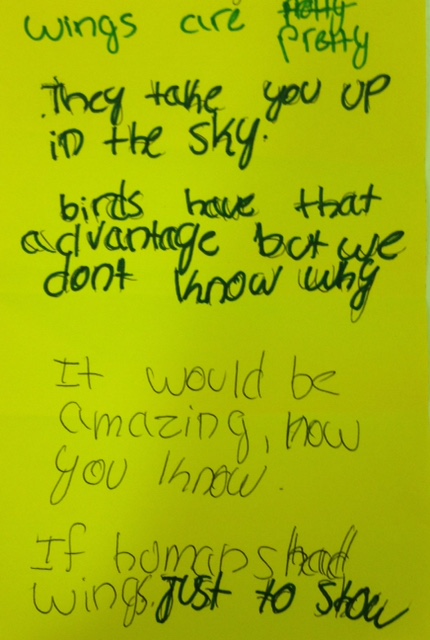 wings are pretty
They take you up
in the sky.
birds have that
advantage but we
dont know why
It would be
amazing, now
you know.
If humans had
wings. Just to show